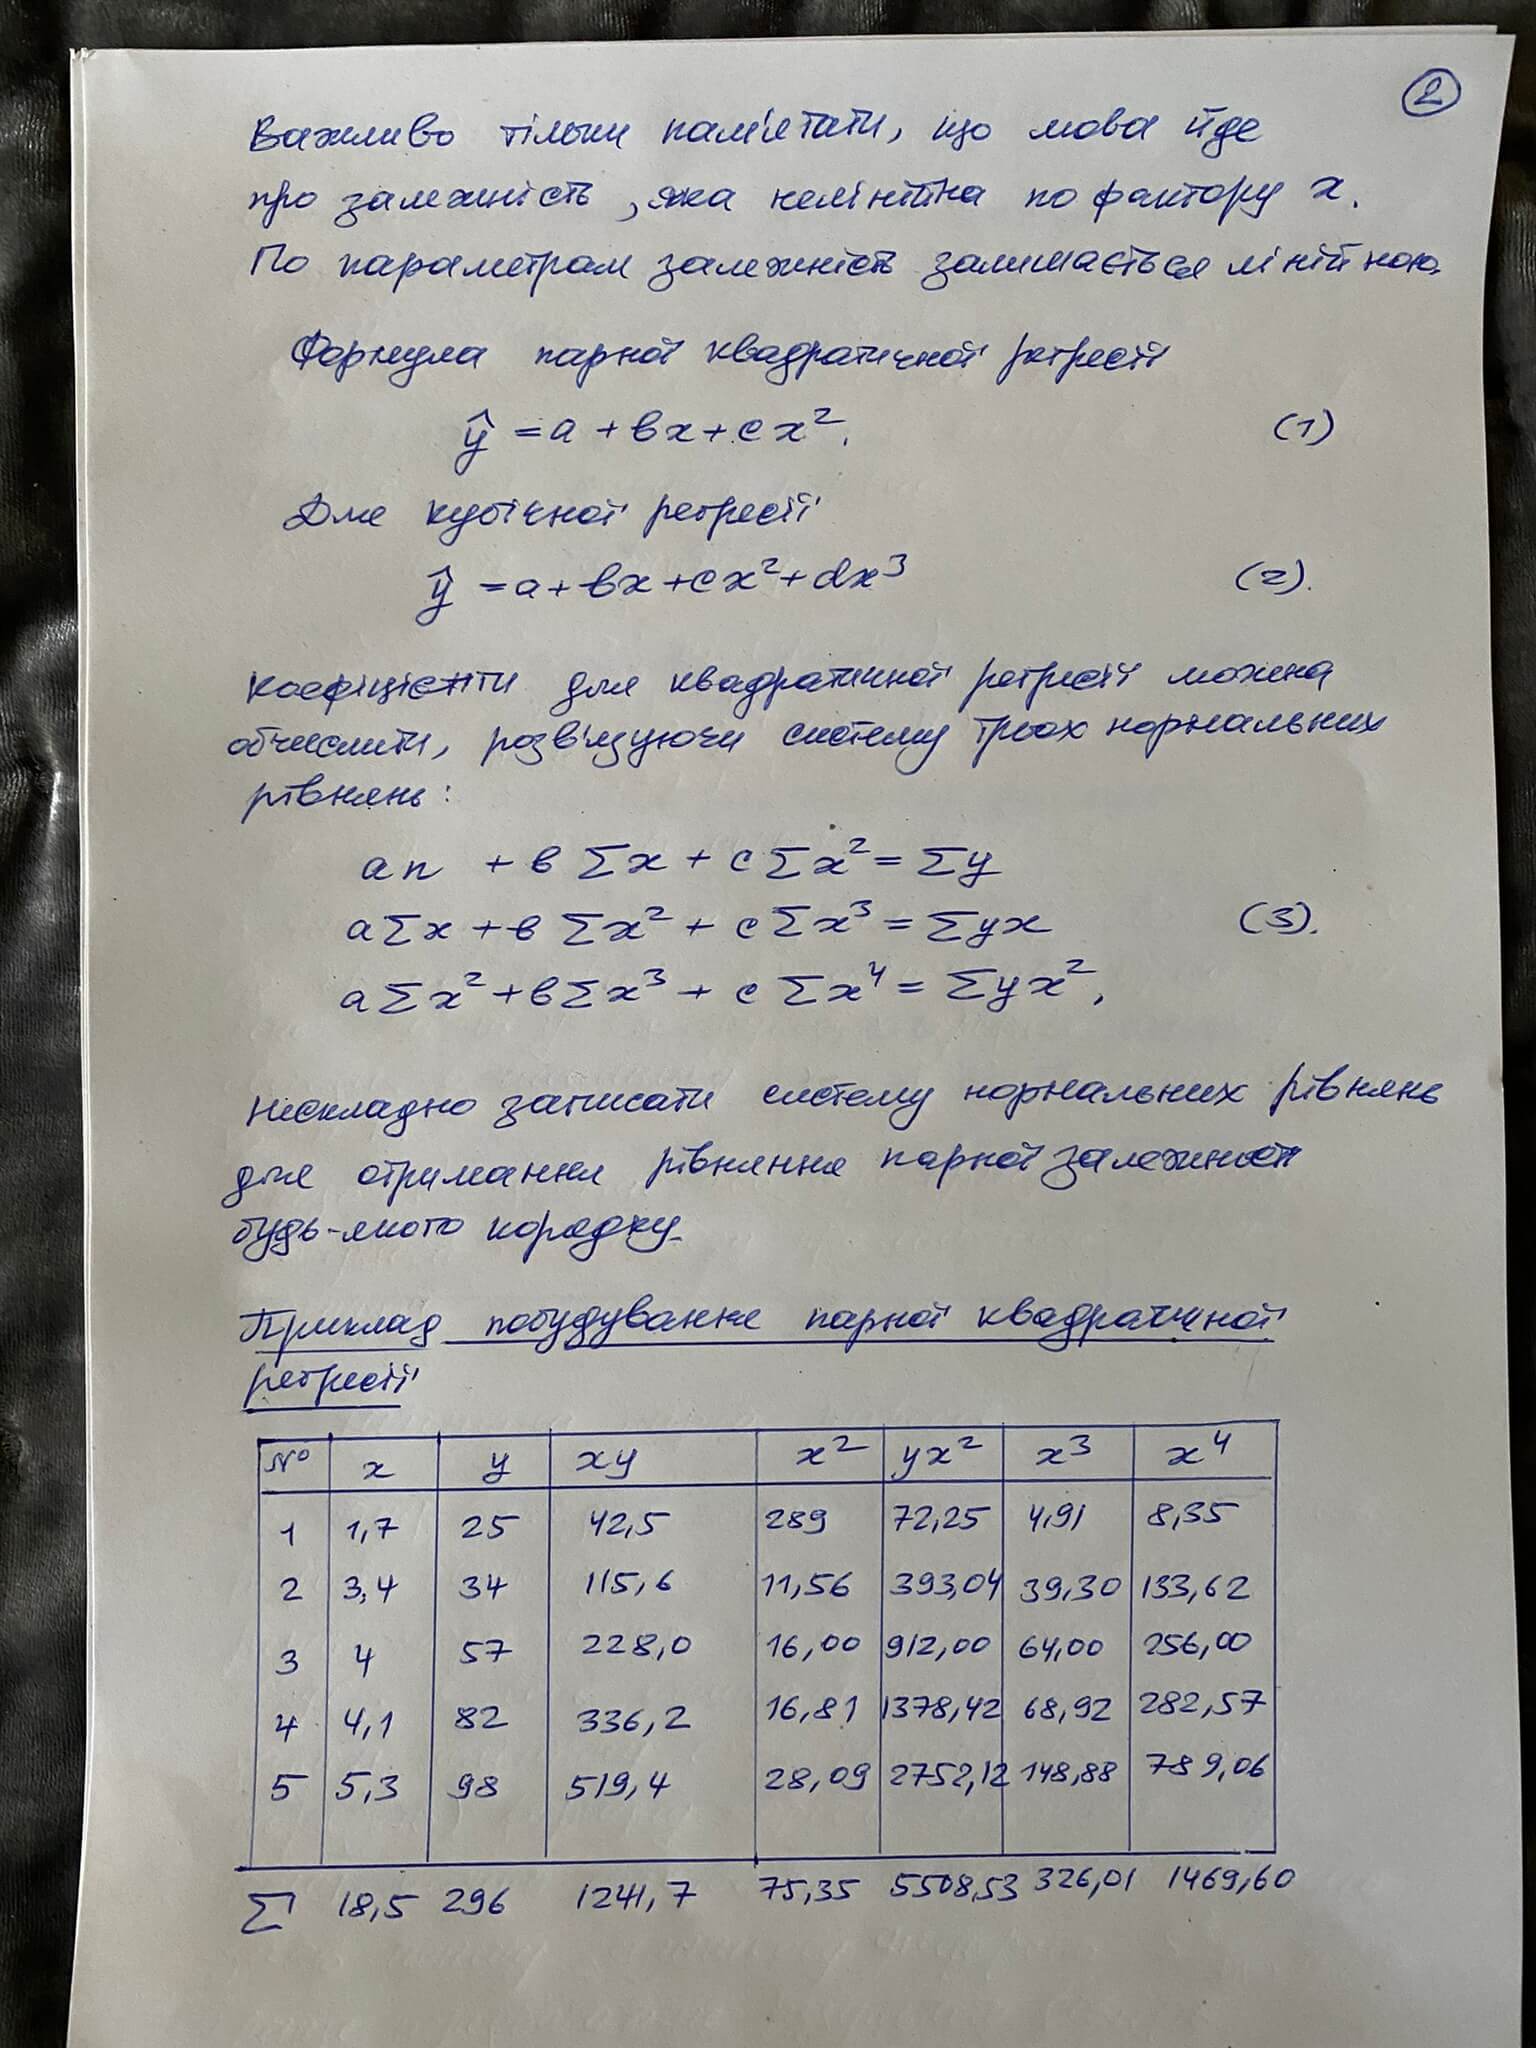 2
Важливо тільки пам'ятати, що мова йде
про залежність, яка нелінійна по фактору x.
По параметрам залежність залишається лінійною.
Формула парної квадратичної регресії
ŷ = a + вx + cx². (1)
Для кубічної регресії
ŷ = a + вx + cx² + dx³ (2).
Коефіцієнти для квадратичної регресії можна
обчислити, розв'язуючи систему трьох нормальних
рівнянь:
an + в Σx + c Σx² = Σy
aΣx + в Σx² + c Σx³ = Σyx (3).
aΣx² + вΣx³ + c Σx⁴ = Σyx²,
Нескладно записати систему нормальних рівнянь
для отримання рівняння парної залежності
будь-якого порядку.
Приклад побудування парної квадратичної
регресії
№ x y xy x² yx² x³ x⁴
1 1,7 25 42,5 289 72,25 4,91 8,35
2 3,4 34 115,6 11,56 393,04 39,30 133,62
3 4 57 228,0 16,00 912,00 64,00 256,00
4 4,1 82 336,2 16,81 1378,42 68,92 282,57
5 5,3 98 519,4 28,09 2752,12 148,88 789,06
Σ 18,5 296 1241,7 75,35 5508,53 326,01 1469,60